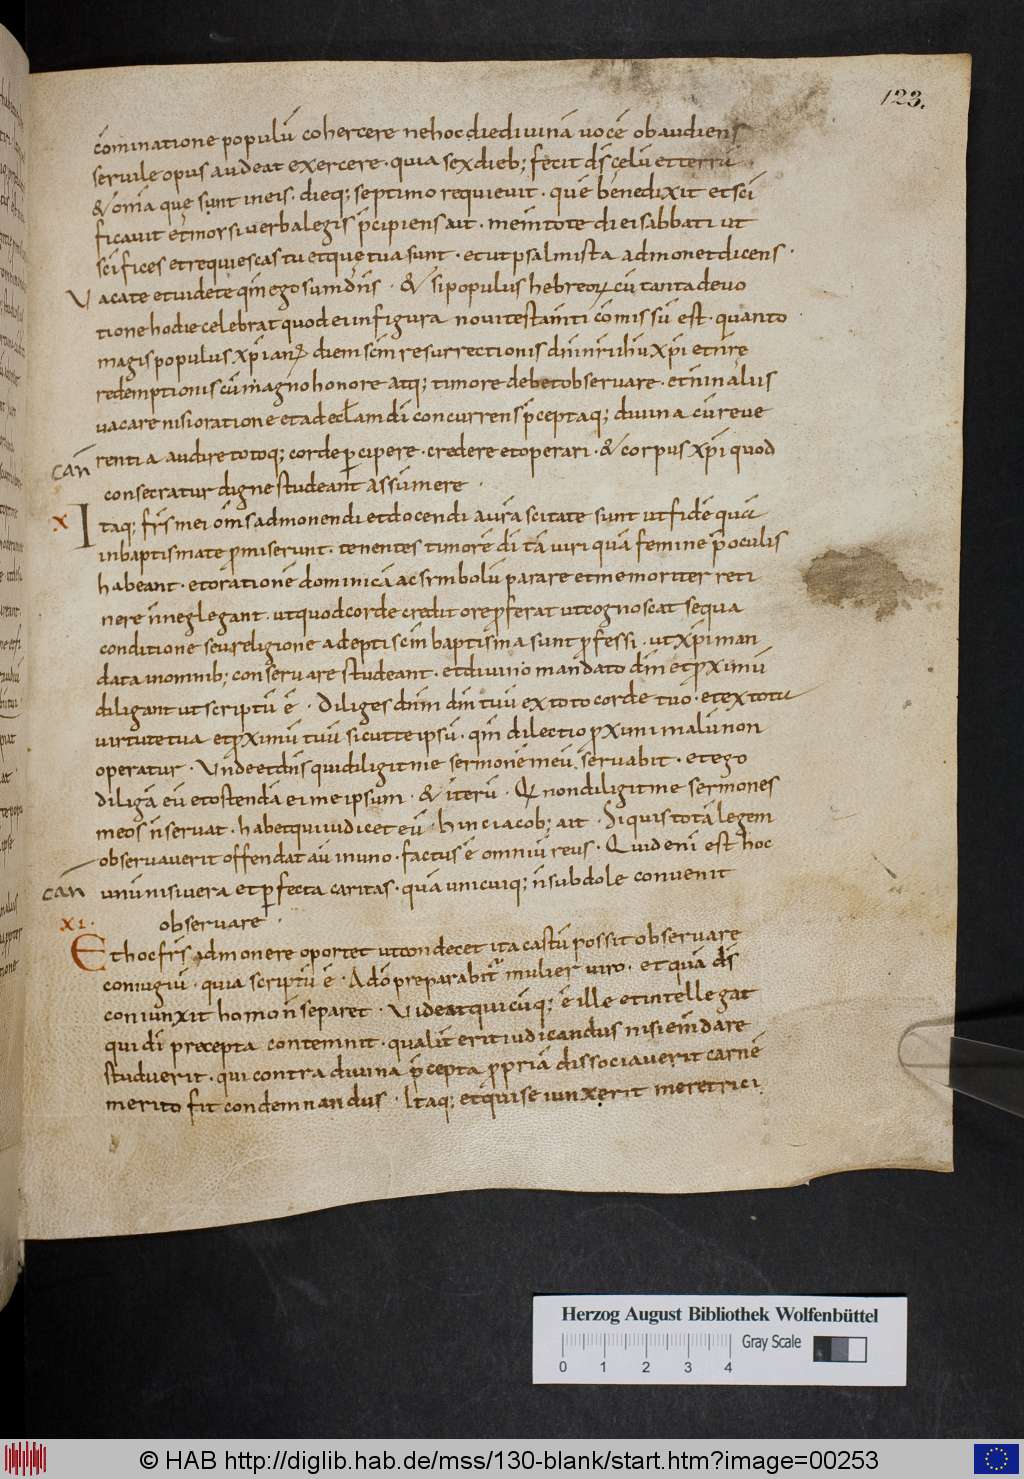 123.
cōminatione populū cohercere ne hoc die divinā vocē obaudiens
servile opus audeat exercere · quia sex dieb; fecit ds̄ celū et terrā
& om̄a que sunt in eis · dieq; septimo requievit · quē benedixit et sc̄i
ficavit et morsi verba legis p̄cipiens ait · mem̄tote diei sabbati ut
sc̄ifices et requiescas tu et que tua sunt · et ut psalmista admonet dicens ·
Vacate et videte qm̄ ego sum dn̄s · & si populus hebreoꝝ cū tanta devo
tione hodie celebrat quod ei in figura novi testam̄ti comissū est · quanto
magis populus xp̄ianꝝ diem scm̄ resurrectionis dn̄i nr̄i ihū xp̄i et nr̄e
redemptionis cū magno honore atq; timore debet observare · et in nałius
vacare nisi oratione et ad eccłam dī concurrens p̄ceptaq; divina cū reve
rentia audire totoq; corde ꝑcipere · credere et operari · & corpus xp̄i quod
can̄
consecratur digne studeant assumere ·
X Itaq; frs̄ mei om̄s admonendi et docendi a vr̄a scitate sunt ut fidē quā
in baptismate ꝓmiserunt · tenentes timorē dī tā viri quā femine p̄ oculis
habeant · et orationē dominicā ac simbolū parare et memoriter reti
nere n̄ neglegant · ut quod corde credit ore ꝓferat ut cognoscat se qua
conditione seu religione adepti scm̄ baptisma sunt ꝓfessi · ut xp̄i man
data in omnib; conservare studeant · et divino mandato dm̄ et ꝓximū
diligant ut scriptū ē · Diliges dnm̄ dm̄ tuū ex toto corde tuo · et ex tota
virtute tua et ꝓximū tuū sicut te ipsū · qm̄ dilectio ꝓximi malū non
operatur · Unde et dn̄s qui diligit me sermonē meū servabit · et ego
diligā eū et ostendā ei me ipsum · & iterū · Qi non diligit me sermones
meos n̄ servat · habet qui iudicet eū · hinc iacob; ait · Si quis totā legem
observaverit offendat aū in uno · factus ē omniū reus · Quid enī est hoc
can̄
unū nisi vera et ꝑfecta caritas · quā unicuiq; n̄ subdole convenit
XI. observare ·
Et hoc frs̄ admonere oportet ut condecet ita castū possit observare
coniugiū · quia scriptū ē · A dō preparabit᷑ mulier viro · et quā ds̄
coniunxit homo n̄ separet · Videat quicūq; ē ille et intellegat
qui dī precepta contemnit · qualit̄ erit iudicandus nisi em̄dare
studuerit · qui contra divina p̄cepta ꝓpriā dissociaverit carnē
merito fit condemnandus · Itaq; et qui se iunxerit meretrici
Herzog August Bibliothek Wolfenbüttel
Gray Scale
0 1 2 3 4
© HAB http://diglib.hab.de/mss/130-blank/start.htm?image=00253